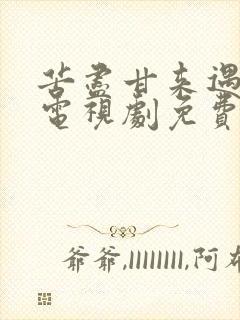 苦盡甘来遇
電視劇免費
爺爺,llllllll,阿布